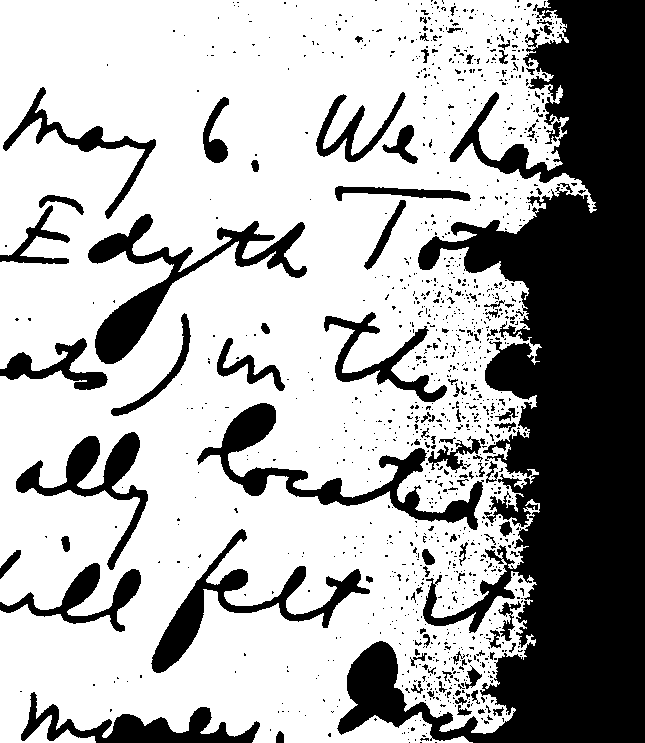 May 6. We han
Edyth Tot
ats) in the
ally located
ill felt it
money. Once